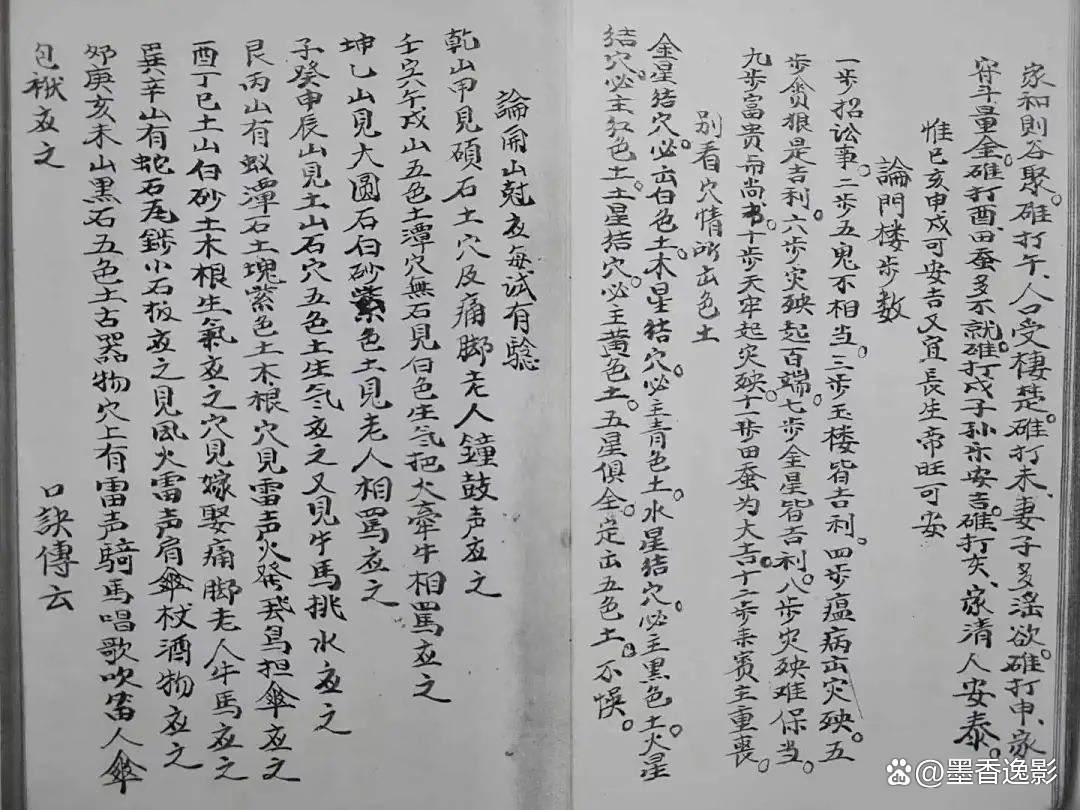 家和則谷聚。碓打午、人口受棲楚。碓打未、妻子多滛欲碓打申、家
守斗量金。碓打酉、田蚕多不就。碓打戌子孙永安吉。碓打亥、家清人安泰。
惟巳亥申戌可安吉又宜長生帝旺可安
論門楼步數
一步招訟事。二步五鬼不相当。三步玉楼皆吉利。四步瘟病出灾殃。五
步貪狼是吉利。六步灾殃起百端。七步金星皆吉利。八步灾殃难保当。
九步富贵而尚书。十步天牢起灾殃。十一步田蚕为大吉。十二步来宾主重喪。
別看穴情所出色土
金星結穴。必出白色土。木星結穴。必主青色土。水星結穴。必主黑色土。火星
結穴。必主红色土。土星結穴。必主黄色土。五星俱全。定出五色土。不悞。
論開山尅应每試有驗
乾山甲見碩石土穴及痛脚老人鐘鼓声应之
壬空六午戌山五色土潭穴無石見白色生气把火牽牛相罵应之
坤乙山見大圆石白砂紫色土見老人相罵应之
子癸申辰山見土山石穴五色土生气应之又見牛馬挑水应之
艮丙山有蚁潭石土塊紫色土木根穴見雷声火發飛鳥担傘应之
酉丁巳土山白砂土木根生氣应之穴見嫁娶痛脚老人牛馬应之
巽辛山有蛇石瓦小石板应之見風火雷声肩傘杖酒物应之
卯庚亥未山黑石五色土古器物穴上有雷声騎馬唱歌吹笛人傘
包袱应之
口訣傳云
@墨香逸影